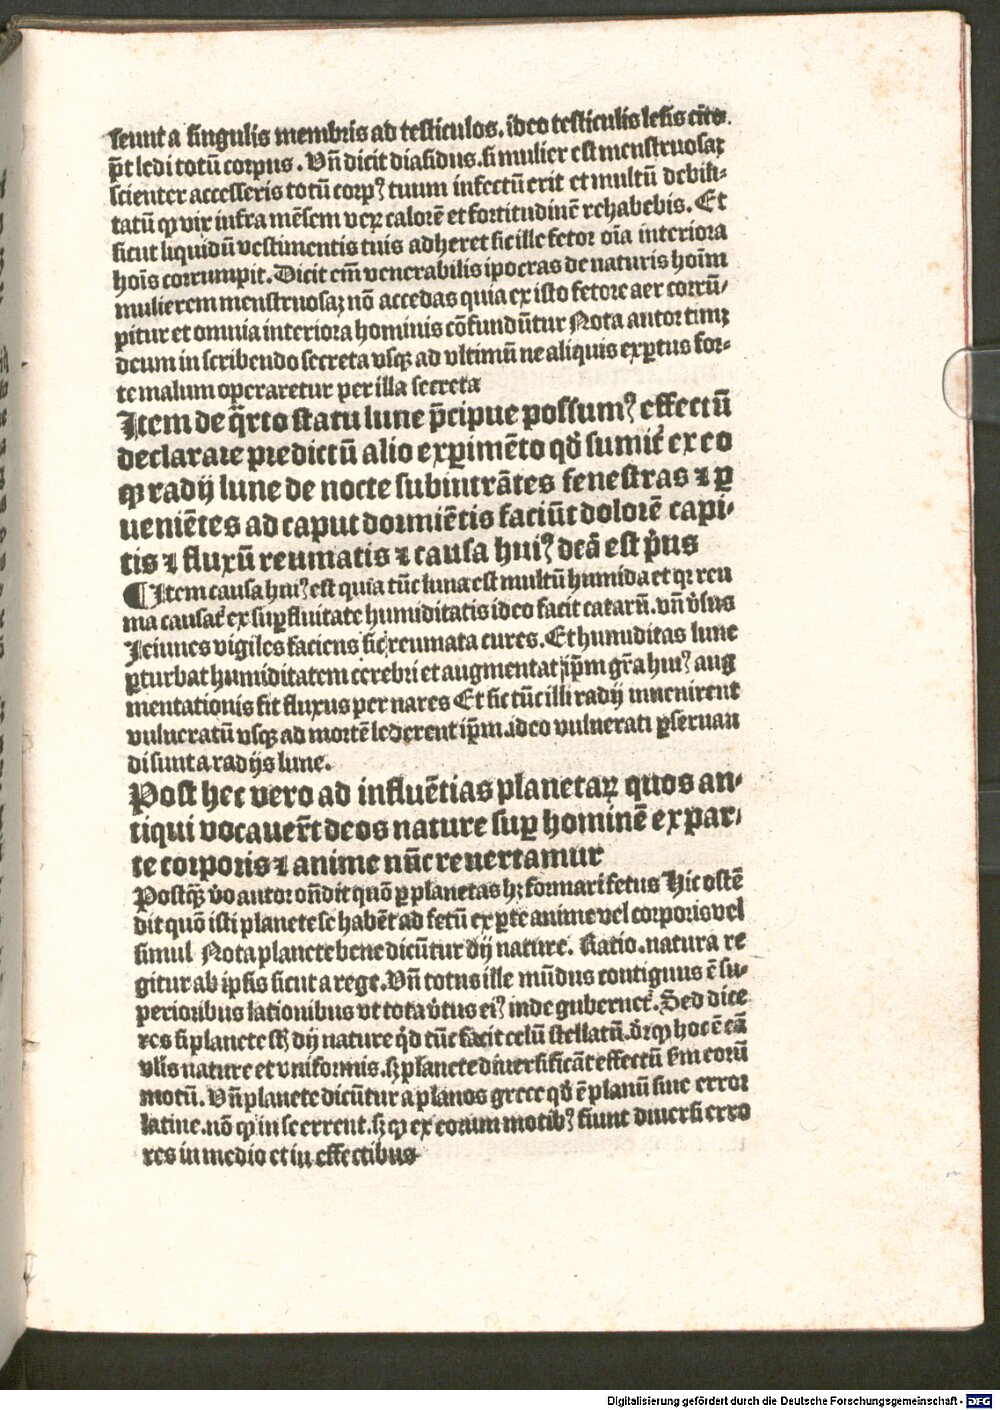 seunt a singulis membris ad testiculos. ideo testiculis lesis cito.
p̄t ledi totū corpus. Vn̄ dicit diasidus. si mulierē est menstruosaꝫ
scienter accesseris totū corpꝰ tuum infectū erit et multū debili⸗
tatū ꝙ vix infra mēsem veꝝ calorē et fortitudinē rehabebis. Et
sicut liquidū vestimentis tuis adheret sic ille fetor oīa interiora
hoīs corrumpit. Dicit em̄ venerabilis ipocras de naturis hoīm
mulierem menstruosaꝫ nō accedas quia ex isto fetore aer corrū⸗
pitur et omnia interiora hominis cōfundūtur Nota autor timꝫ
deum in scribendo secreta vsqꝫ ad vltimū ne aliquis exꝑtus for⸗
te malum operaretur per illa secreta
Item de q̄rto statu lune p̄cipue possumꝰ effectū
declarare predictū alio exꝑimēto qd̄ sumit᷑ ex eo
ꝙ radij lune de nocte subintrātes fenestras ⁊ ꝑ
ueniētes ad caput dormiētis faciūt dolorē capi⸗
tis ⁊ fluxū reumatis ⁊ causa huiꝰ dcā est pͥus
¶ Item causa huiꝰ est quia tūc luna est multū humida et qꝛ reu
ma causat᷑ ex suꝑfluitate humiditatis ideo facit catarū. vn̄ v̓sus
Ieiunes vigiles faciens sic reumata cures. Et humiditas lune
ꝑturbat humiditatem cerebri et augmentat ip̄m gr̄a huiꝰ aug
mentationis fit fluxus per nares Et sic tūc illi radij inuenirent
vulneratū vsqꝫ ad mortē lederent ip̄m. ideo vulnerati ꝑseruan
di sunt a radijs lune.
Post hec vero ad influētias planetaꝝ quos an⸗
tiqui vocauer̄t deos nature suꝑ hominē ex par⸗
te corporis ⁊ anime nūc reuertamur
Postqꝫ v̓o autor on̄dit quō ꝑ planetas hꝫ formari fetus Hic ostē
dit quō isti planete se habēt ad fetū ex ꝑte anime vel corporis vel
simul Nota planete bene dicūtur dij nature. Ratio. natura re
gitur ab ip̄sis sicut a rege. Vn̄ totus ille mūdus contiguus ē su⸗
perioribus lationibus vt tota v̓tus eiꝰ inde gubernet᷑. Sed dice
res si planete sꝫ dij nature qͥd tūc facit celū stellatū. dr̄ ꝙ hoc ē cā
vlīs nature et vniformis. sꝫ planete diuersificāt effectū ẜm eorū
motū. Vn̄ planete dicūtur a planos grece qd̄ ē planū siue error
latine. nō ꝙ in se errent. sꝫ ꝙ ex eorum motibꝰ fiunt diuersi erro
res in medio et in effectibus
Digitalisierung gefördert durch die Deutsche Forschungsgemeinschaft - DFG